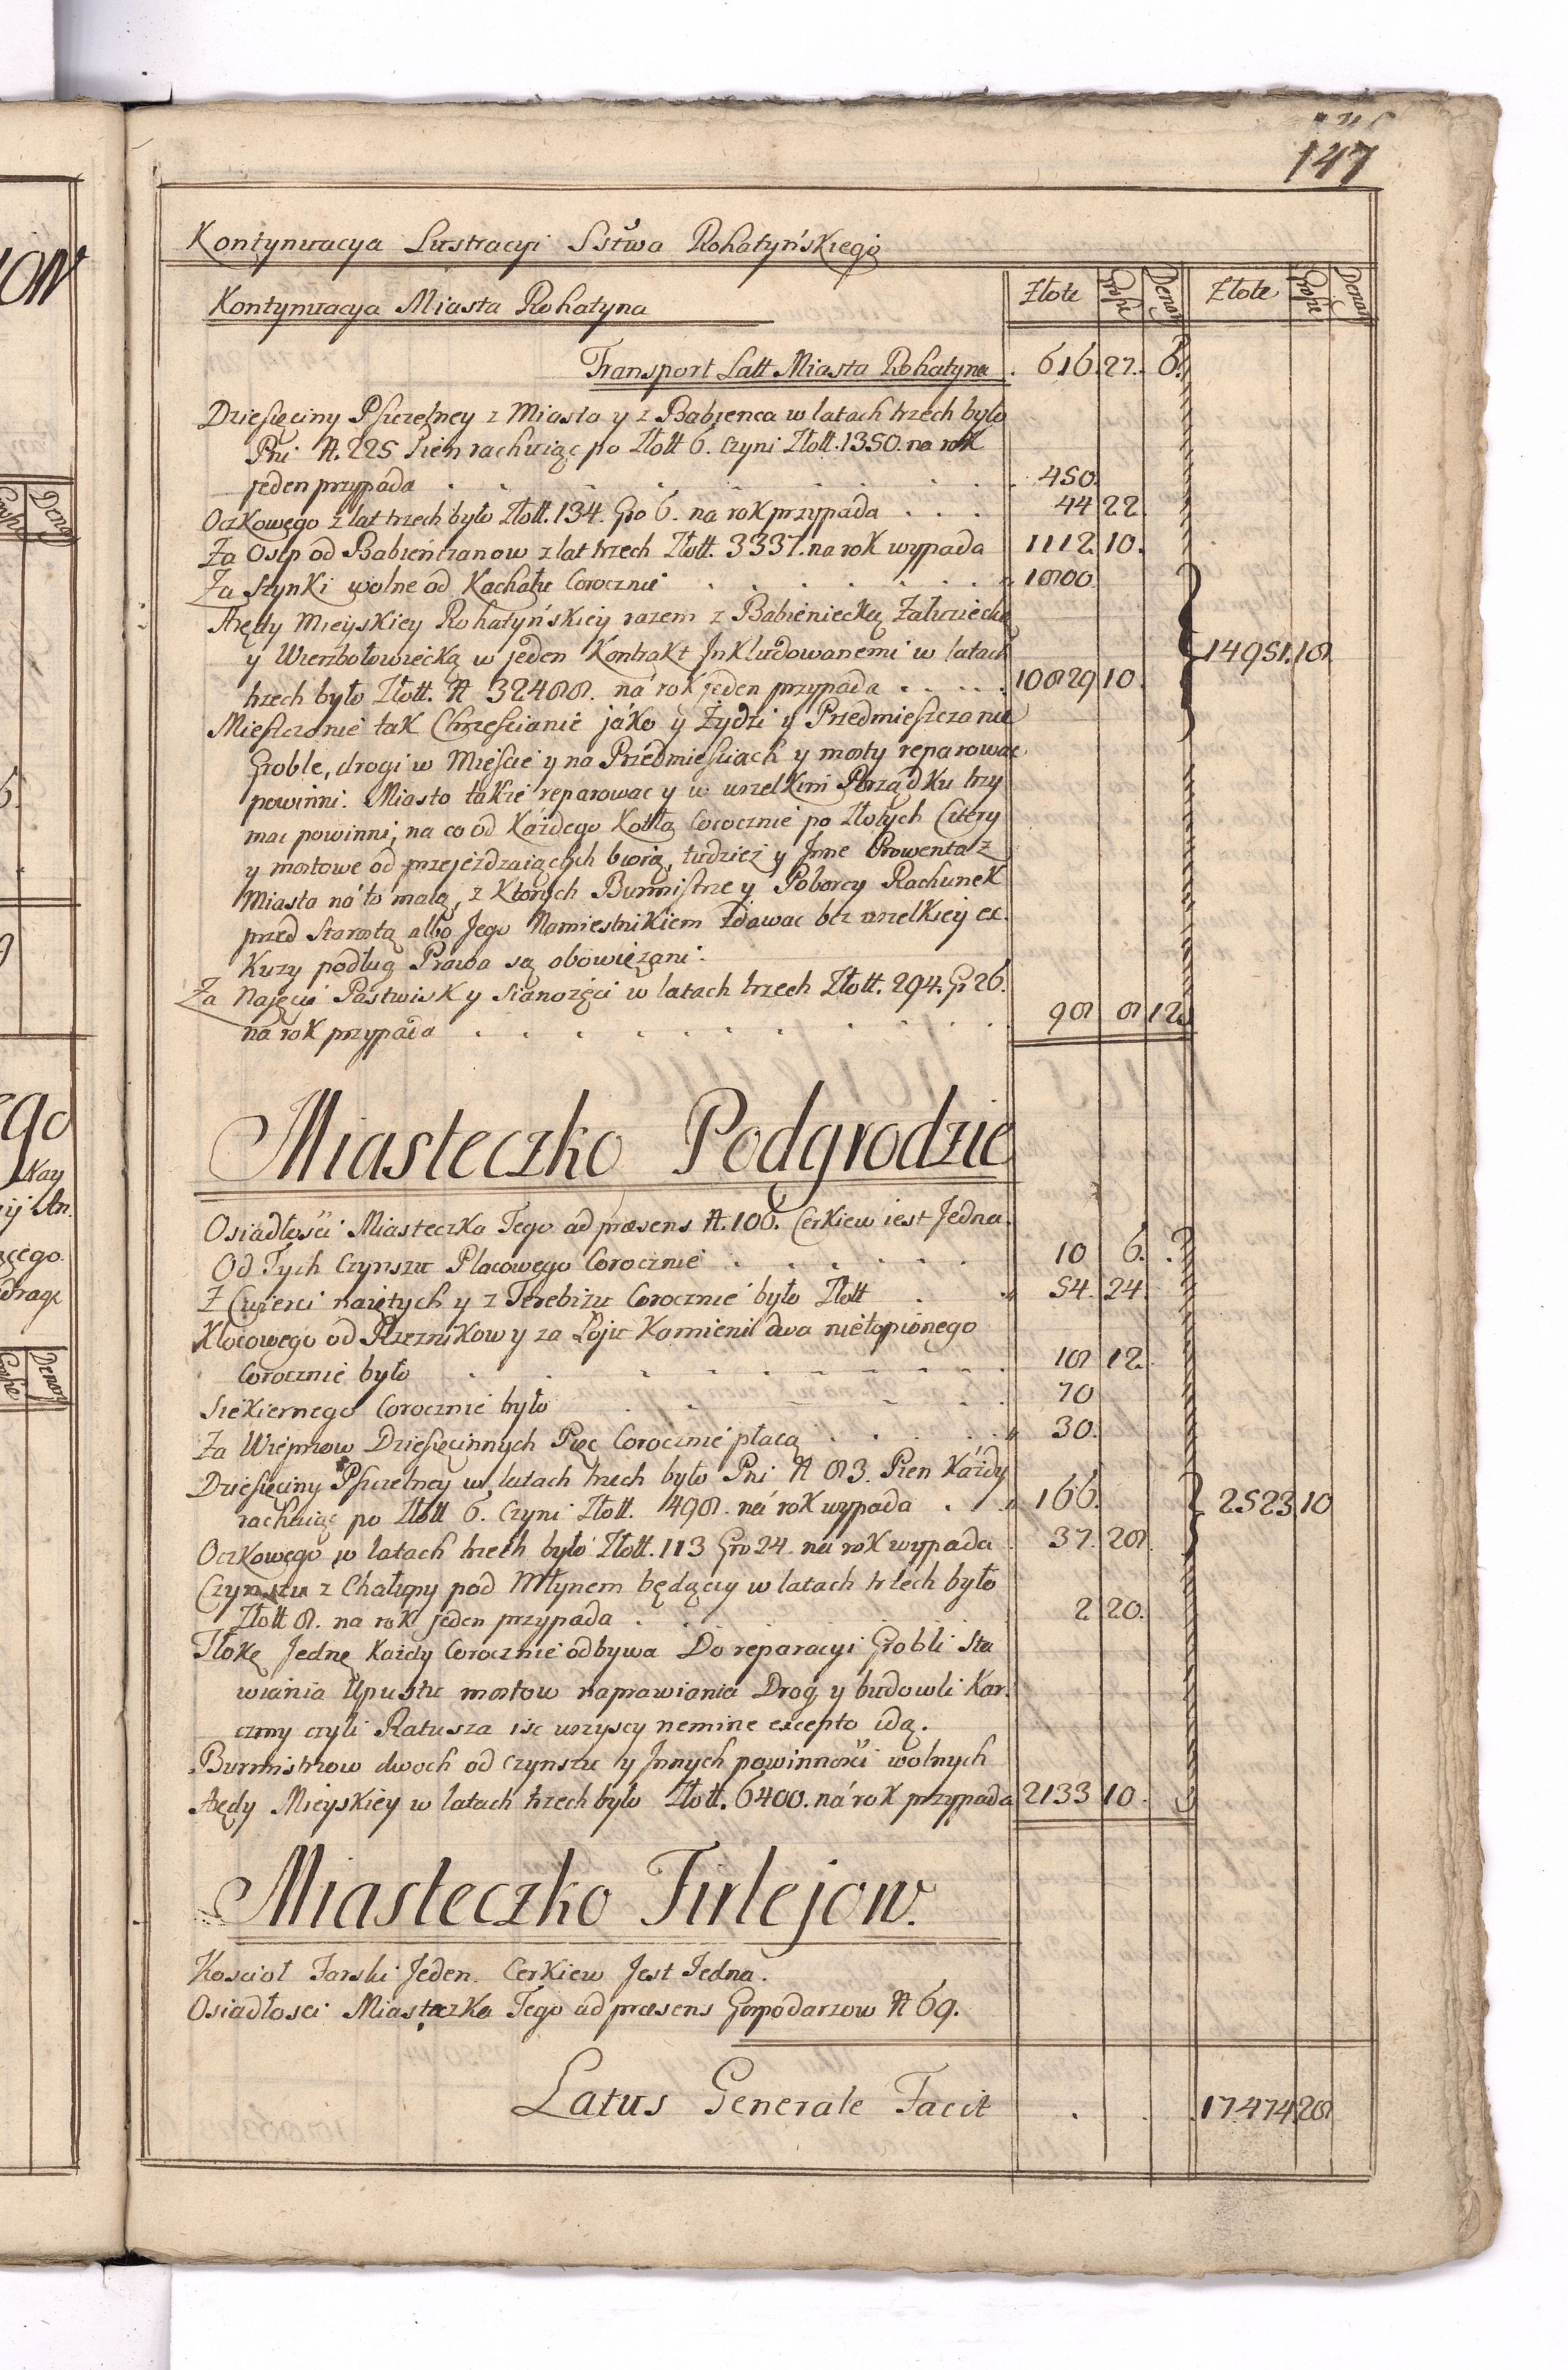 147
Kontynuacya Lustracyi Sstwa Rohatyńskiego
Kontynuacya Miasta Rohatyna Złote Grosze Denar Złote Grosze Denar
Transport Latt Miasta Rohatyna . 616. 27. 6.
Dziesięciny Pszczelney z Miasta y z Babienca w latach trzech było
Pni N. 225 Pień rachuiąc po Złott 6. czyni Złott. 1350. na rok
jeden przypada . . . . . . . 450.
Oczkowego z lat trzech było Złott. 134. Gro 6. na rok przypada . . . 44 22.
Za Osep od Babieńczanow z lat trzech Złott. 3337. na rok wypada 1112. 10.
Za szynki wolne od Kachału Corocznie . . . . . . . 1800
Arędy Mieyskiey Rohatyńskiey razem z Babieniecką Załuziecką
y Wierzbołowiecką w jeden Kontrakt Inkludowanemi w latach 14951. 18
trzech było Złott. N 32488. na rok jeden przypada . . . . . 10829 10.
Mieszczanie tak Chrześcianie jáko y Żydzi y Przedmieszczanie
Groble, drogi w Mieście y na Przedmieściach y mosty reparować
powinni. Miasto takze reparować y w wszelkim Porządku trzy
mac powinni, na co od Każdego Kotła Corocznie po Złotych Cztery
y mostowe od przejeżdzaiących biorą, tudzież y Inne Prowenta z
Miasta na to maią, z Ktorych Burmistrze y Poborcy Rachunek
przed Starostą albo Jego Namiestnikiem zdawac bez wszelkiey ex.
Kuzy podług Prawa są obowięzani.
Za Najęcie Pastwisk y Sianozęci w latach trzech Złott. 294. Gr 26.
na rok przypada . . . . . . . . . 98 8 12.
Miasteczko Podgrodzie
Osiadłości Miasteczka Tego ad præsens N. 106. Cerkiew iest Jedna.
Od Tych Czynszu Placowego Corocznie . . . . . . 10 6.
Z Cwierci naiętych y z Terebizu Corocznie było Złott . . 54. 24.
Klocowego od Rzeznikow y za Łoju Kamieni dwa nietopionego
Corocznie było . . . . . . . . 18 12.
Siekiernego Corocznie było . . . . . . 70
Za Wieprzow Dziesięcinnych Pięc Corocznie płacą . . . . . 30.
Dziesięciny Pszczelney w latach trzech było Pni N 83. Pień Każdy
rachuiąc po Złott 6. Czyni Złott. 498. na rok wypada . . 166. 2523. 10
Oczkowego w latach trzech było Złott. 113 Gro 24. na rok wypada . 37. 28.
Czynszu z Chałupy pod Młynem będącey w latach trzech było
Złott 8. na rok jeden przypada . . . . . . 2 20.
Tłokę Jednę Każdy Corocznie odbywa Do reparacyi Grobli Sta
wiania Upustu mostow naprawiania Drog y budowli Kar.
czmy czyli Ratusza isc wszyscy nemine excepto idą.
Burmistrzow dwoch od czynszu y Innych powinności wolnych
Arędy Mieyskiey w latach trzech było Złott. 6400. na rok przypada 2133 10.
Miasteczko Firlejow.
Kosciol Farski Jeden. Cerkiew Jest Jedna.
Osiadłosci Miasteczka Tego ad præsens Gospodarzow N 69.
Latus Generale Facit . . . 17474. 28